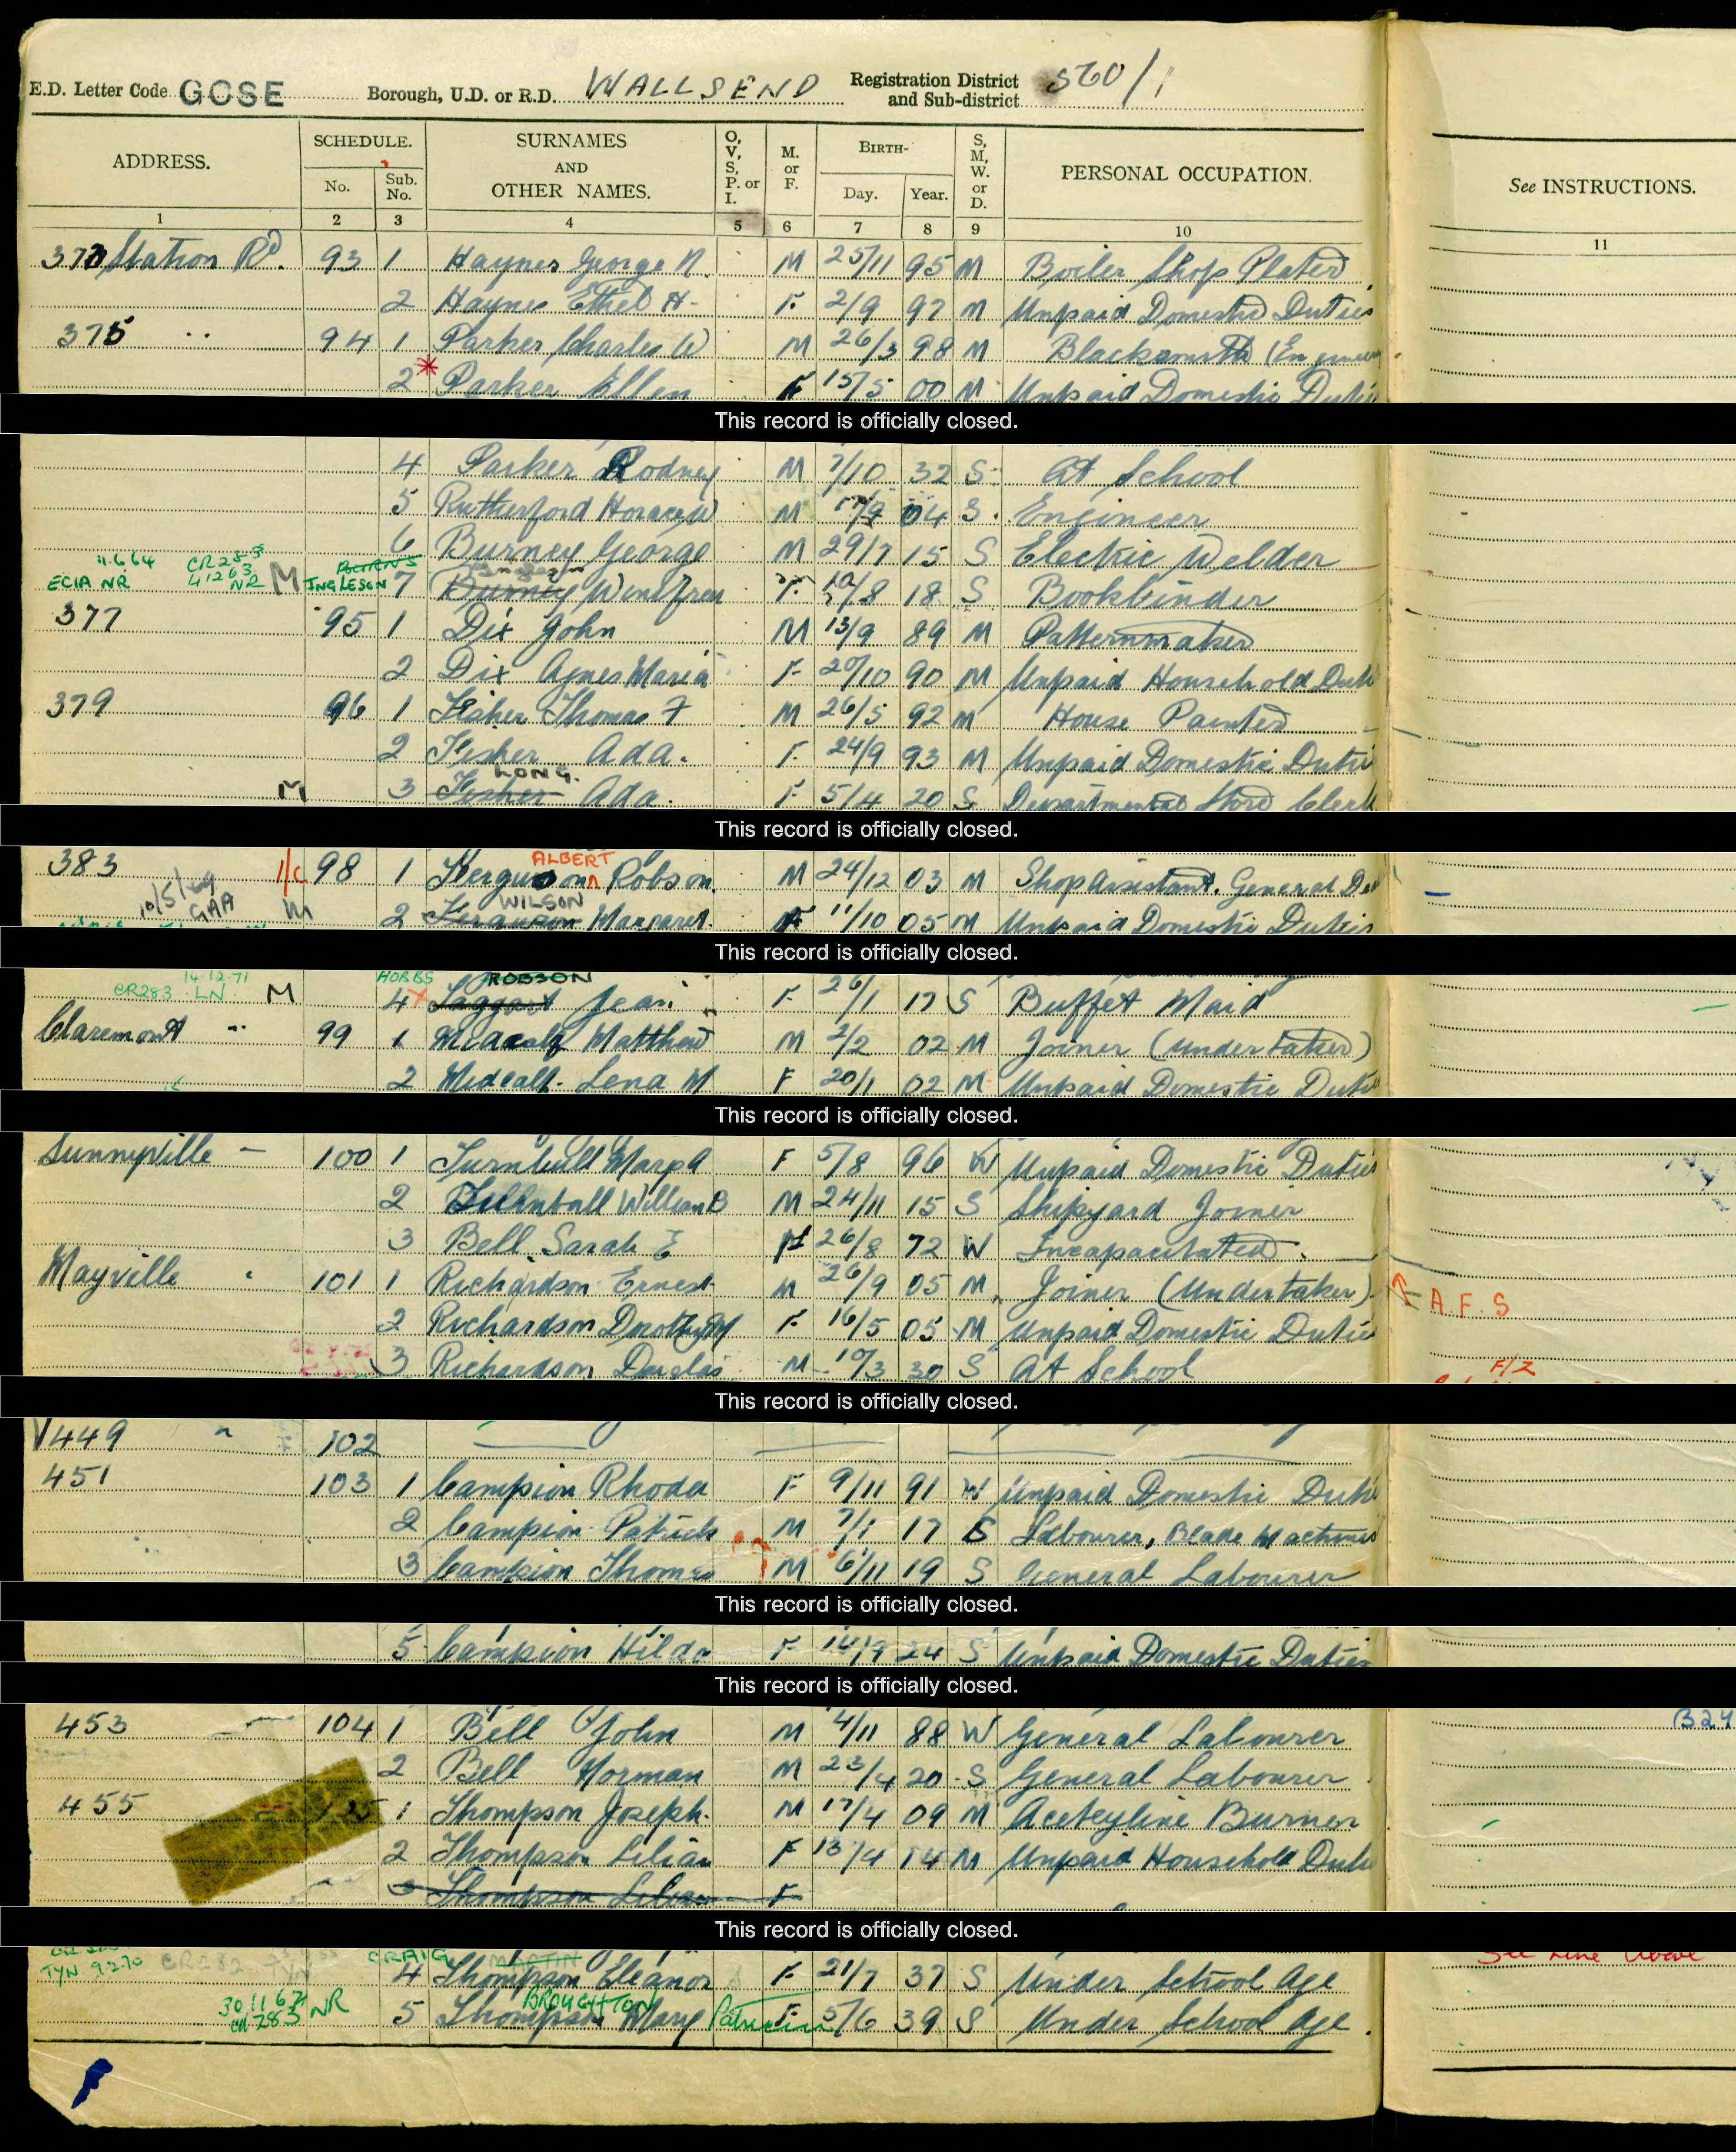 E.D. Letter Code GCSE Borough, U.D. or R.D. WALLSEND Registration District and Sub-district 560/1
ADDRESS. SCHEDULE. SURNAMES AND OTHER NAMES. O, V, S, P. or I. M. or F. BIRTH- S, M, W. or D. PERSONAL OCCUPATION. See INSTRUCTIONS.
No. Sub. No. Day. Year.
1 2 3 4 5 6 7 8 9 10 11
373 Station Rd. 93 1 Haynes George N. M 25/11 95 M Boiler Shop Plater
2 Haynes Ethel H- F. 2/9 97 M Unpaid Domestic Duties
375 " 94 1 Parker Charles W M 26/3 98 M Blacksmith (Engineer
2 Parker Ellen F 15/5 00 M Unpaid Domestic Duties
This record is officially closed.
4 Parker Rodney M 7/10 32 S At School
5 Rutherford Horace W M 04 S. Engineer
6 Burney George M 29/7 15 S Electric Welder
11.6.64 CR283
ECIA NR 41263 NR M INGLESON 7 Burney Winifred F. /8 18 S Bookbinder
377 95 1 Dix John M 13/9 89 M Patternmaker
2 Dix Agnes Maria F 20/10 90 M Unpaid Household Duti
379 96 1 Fisher Thomas F M 26/5 92 M House Painter
2 Fisher Ada. F. 24/9 93 M Unpaid Domestic Dutie
LONG.
M 3 Fisher Ada. F 5/4 20 S. Departmental Store Clerk
This record is officially closed.
ALBERT
383 1/c 98 1 Ferguson Robson. M 24/12 03 M Shop Assistant. General De
10/5/49 GAA M WILSON
2 Ferguson Margaret. F 11/10 05 M Unpaid Domestic Duties
This record is officially closed.
14.12.71 HOBBS ROBSON
CR283 LN M 4 Taggart Jean F 26/1 17 S Buffet Maid
Claremont " 99 1 Midcalf Matthew M 2/2 02 M Joiner (Undertaker)
2 Midcalf. Lena M F 20/1 02 M Unpaid Domestic Dutie
This record is officially closed.
Sunnyville — 100 1 Turnbull Mary A F 5/8 96 W Unpaid Domestic Duties
2 Turnbull William B M 24/11 15 S Shipyard Joiner
3 Bell Sarah E F 26/8 72 W Incapacitated.
Mayville " 101 1 Richardson Ernest M 26/9 05 M. Joiner (Undertaker) A.F.S
2 Richardson Dorothy M F 16/5 05 M Unpaid Domestic Duties
3 Richardson Douglas M 10/3 30 S At School F/2
This record is officially closed.
√449 " 102
451 103 1 Campion Rhoda F 9/11 91 W Unpaid Domestic Duti
2 Campion Patrick M 7/1 17 S Labourer, Blade Machines
3 Campion Thomas M 6/11 19 S General Labourer
This record is officially closed.
5 Campion Hilda F 14/9 24 S Unpaid Domestic Duties
This record is officially closed.
453 104 1 Bell John M 4/11 88 W General Labourer B24
2 Bell Norman M 23/4 20 S General Labourer
455 1 Thompson Joseph. M 17/4 09 M Aceteyline Burner
2 Thompson Lilian F 13/4 14 M Unpaid Household Duti
3 Thompson Lilian F
This record is officially closed.
TYN 9.2.70 CR282 TYN CRAIG MARTIN See line above
4 Thompson Eleanor F 21/7 37 S Under School Age
30.11.62 CR283 NR BROUGHTON
5 Thompson Mary Patricia F 5/6 39 S Under School Age.